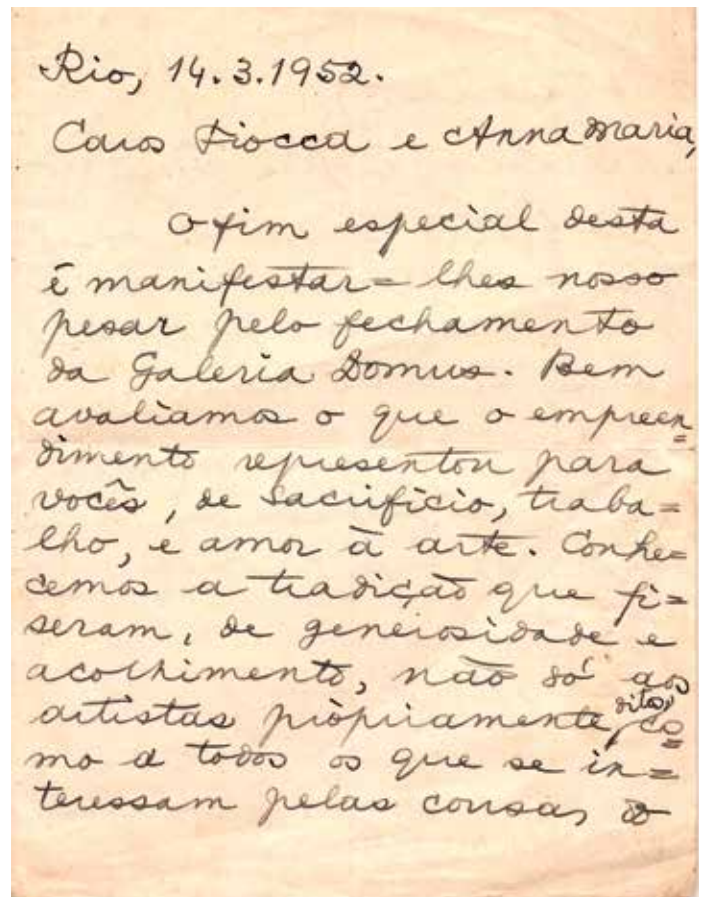 Rio, 14.3.1952.
Caros Fiocca e Anna Maria,
O fim especial desta
é manifestar=lhes nosso
pesar pelo fechamento
da Galeria Domus. Bem
avaliamos o que o empreen=
dimento representou para
vocês, de sacrifício, traba=
lho, e amor à arte. Conhe=
cemos a tradição que fi=
seram, de generosidade e
acolhimento, não só aos
artistas pròpriamente ditos, co=
mo a todos os que se in=
teressam pelas cousas